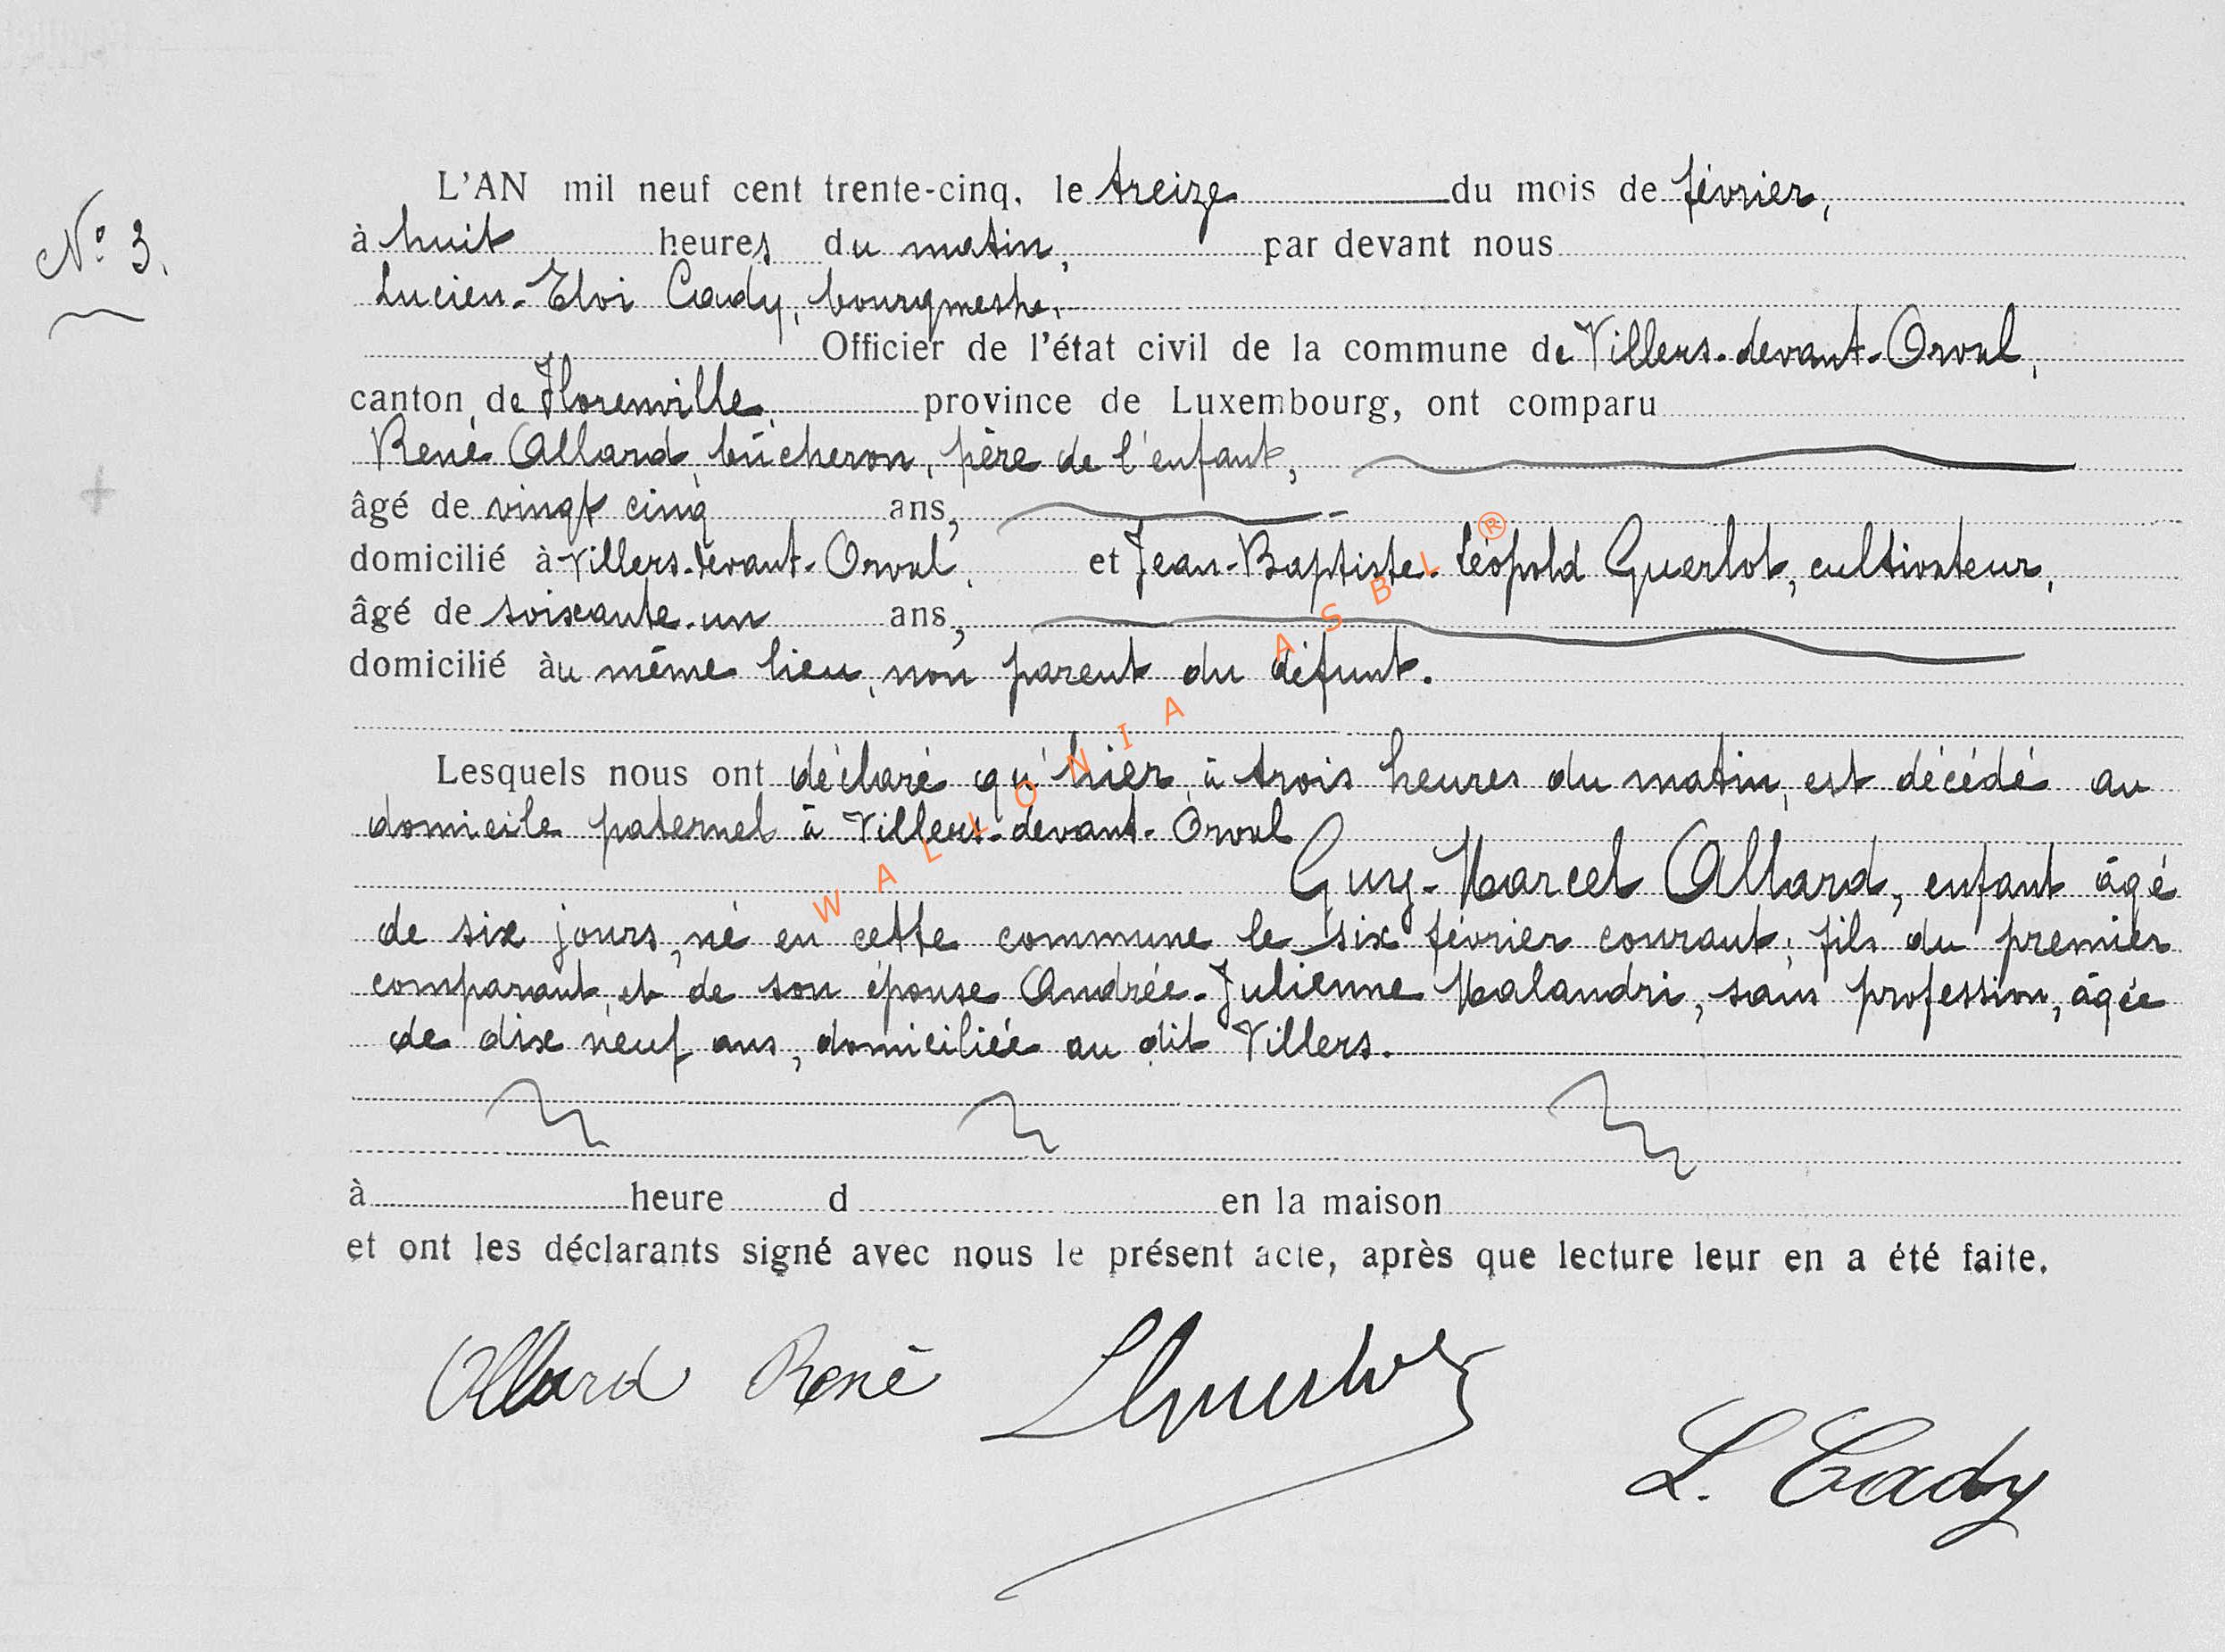 L'AN mil neuf cent trente-cinq, le treize du mois de février,
N° 3.
à huit heures du matin, par devant nous
Lucien-Eloi Cady, bourgmestre,
Officier de l'état civil de la commune de Villers-devant-Orval,
canton de Florenville, province de Luxembourg, ont comparu
René Allard, bûcheron, père de l'enfant,
âgé de vingt cinq ans,
domicilié à Villers-devant-Orval, et Jean-Baptiste-Léopold Guerlot, cultivateur,
âgé de soixante-un ans,
domicilié àu même lieu, non parent du défunt.
Lesquels nous ont déclaré qu'hier, à trois heures du matin, est décédé au
domicile paternel à Villers-devant-Orval
Guy-Marcel Allard, enfant âgé
de six jours, né en cette commune le six février courant, fils du premier
comparant, et de son épouse Andrée-Julienne Malandri, sans profession, âgée
de dix neuf ans, domiciliée au dit Villers.
à heure d en la maison
et ont les déclarants signé avec nous le présent acte, après que lecture leur en a été faite.
Allard René
L. Cady
WALLONIA ASBL ®